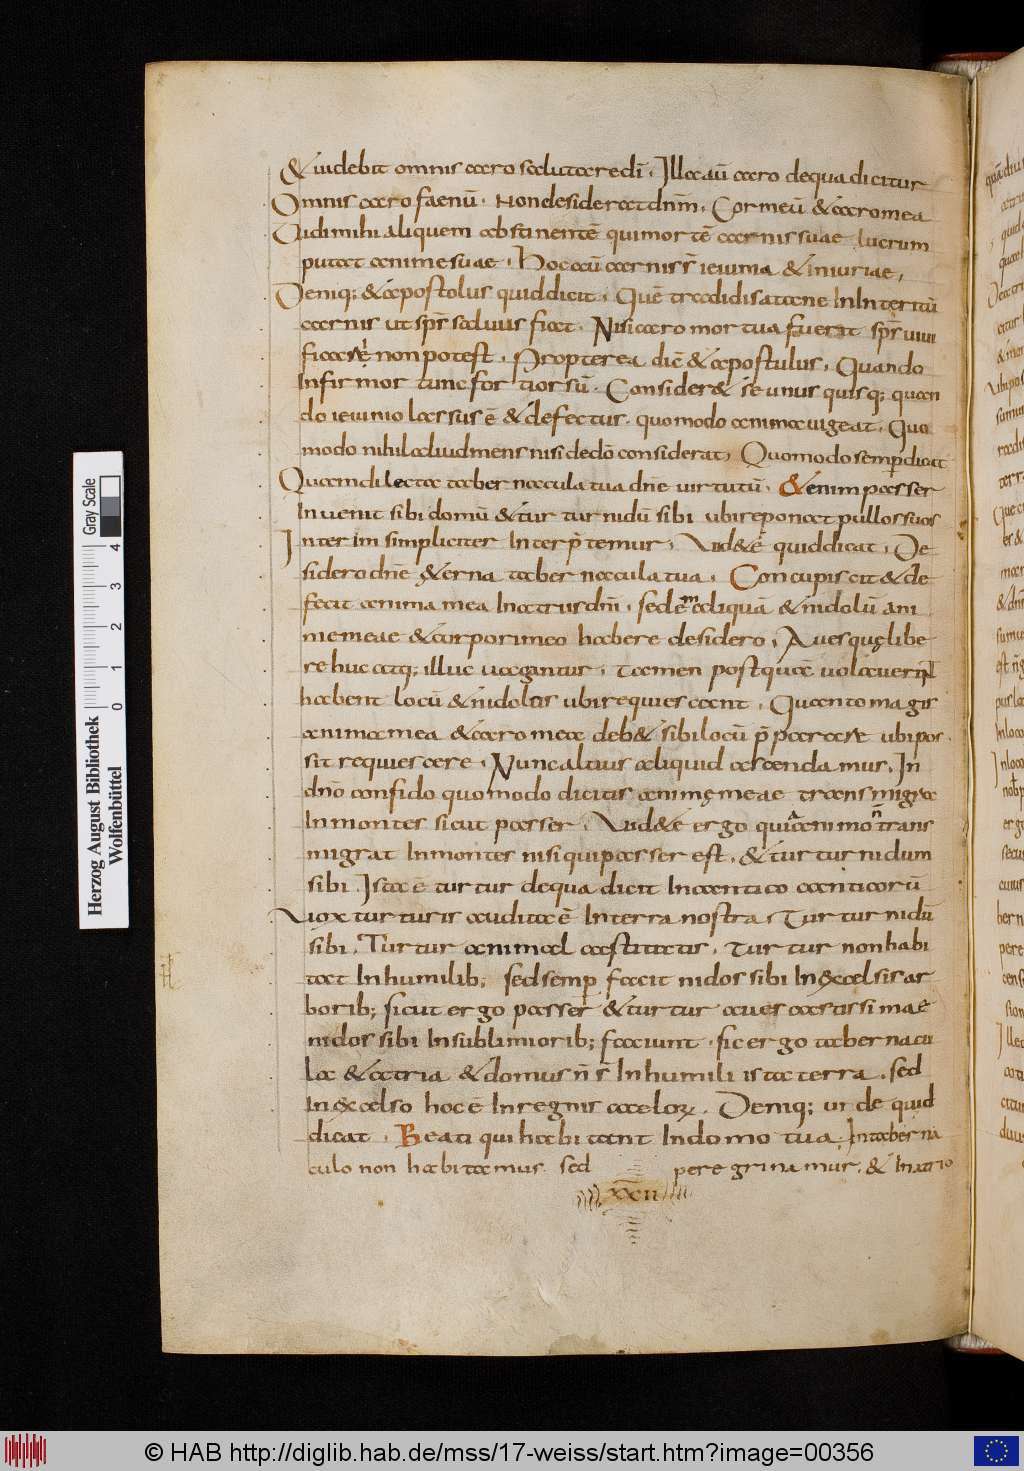 & uidebit omnis caro salutare dī. Illa aū caro de qua dicitur
Omnis caro faenū. Non desiderat dnm̄. Cor meū & caro mea
Da mihi aliquem abstinentē qui mortē carnis suae lucrum
putat anime suae. Hoc aū carnis ē ieiuma & iniuriae,
Deniq; & apostolus quid dicit. Quē tradidi satane In Interitū
carnis ut spr̄ saluus fiat. Nisi caro mortua fuerit spr̄ uiui
ficare non potest. Propterea dic̄ & apostulus. Quando
Infirmor tunc fortior sū. Consider& se unus quisq; quan
do ieiunio lassus ē & defectus. quomodo anima uigeat. Quo
modo nihil aliud mens nisi de dō considerat. Quomodo semp dicat
Quam dilecta tabernacula tua dn̄e uirtutū. &enim passer
Inuenit sibi domū & turtur nidū sibi ubi reponat pullos suos
Interim simpliciter Interp̄temur. Uid&ē quid dicat. De
sidero dn̄e &erna tabernacula tua. Concupiscit & de
fecit anima mea In atrus dn̄i. sed ē aliquā & nidolū ani
me meae & corpori meo habere desidero. Aues quę libe
re huc atq; illuc uagantur. Tamen postquā uolauerint
habent locū & nidolos ubi requiescant. Quanto magis
anima mea & caro mea deb& sibi locū p̄parare ubi pos
sit requiescere. Nunc altius aliquid ascendamus. In
dnō confido quomodo dicitis animę meae transmigra
In montes sicut passer. Uid&ē ergo quia animo trans
migrat In montes nisi qui passer est. & turtur nidum
sibi. Ista ē turtur de qua dicit In cantico canticorū
Uox turturis audita ē In terra nostra. Turtur nidū
sibi. Turtur animal castitatis. Turtur non habi
tat In humilib; sed semp facit nidos sibi In excelsis ar
borib; sicut ergo passer & turtur aues castissimae
nidos sibi In sublimiorib; faciunt. sic ergo tabernacu
la & atria & domus n̄ ē In humili ista terra. sed
In excelso hoc ē In regnis caelorꝝ. Deniq; uide quid
dicat. Beati qui habitant In domo tua. In taberna
culo non habitamus sed peregrinamur. & In atrio
xxii
Herzog August Bibliothek
Wolfenbüttel
0 1 2 3 4
Gray Scale
© HAB http://diglib.hab.de/mss/17-weiss/start.htm?image=00356